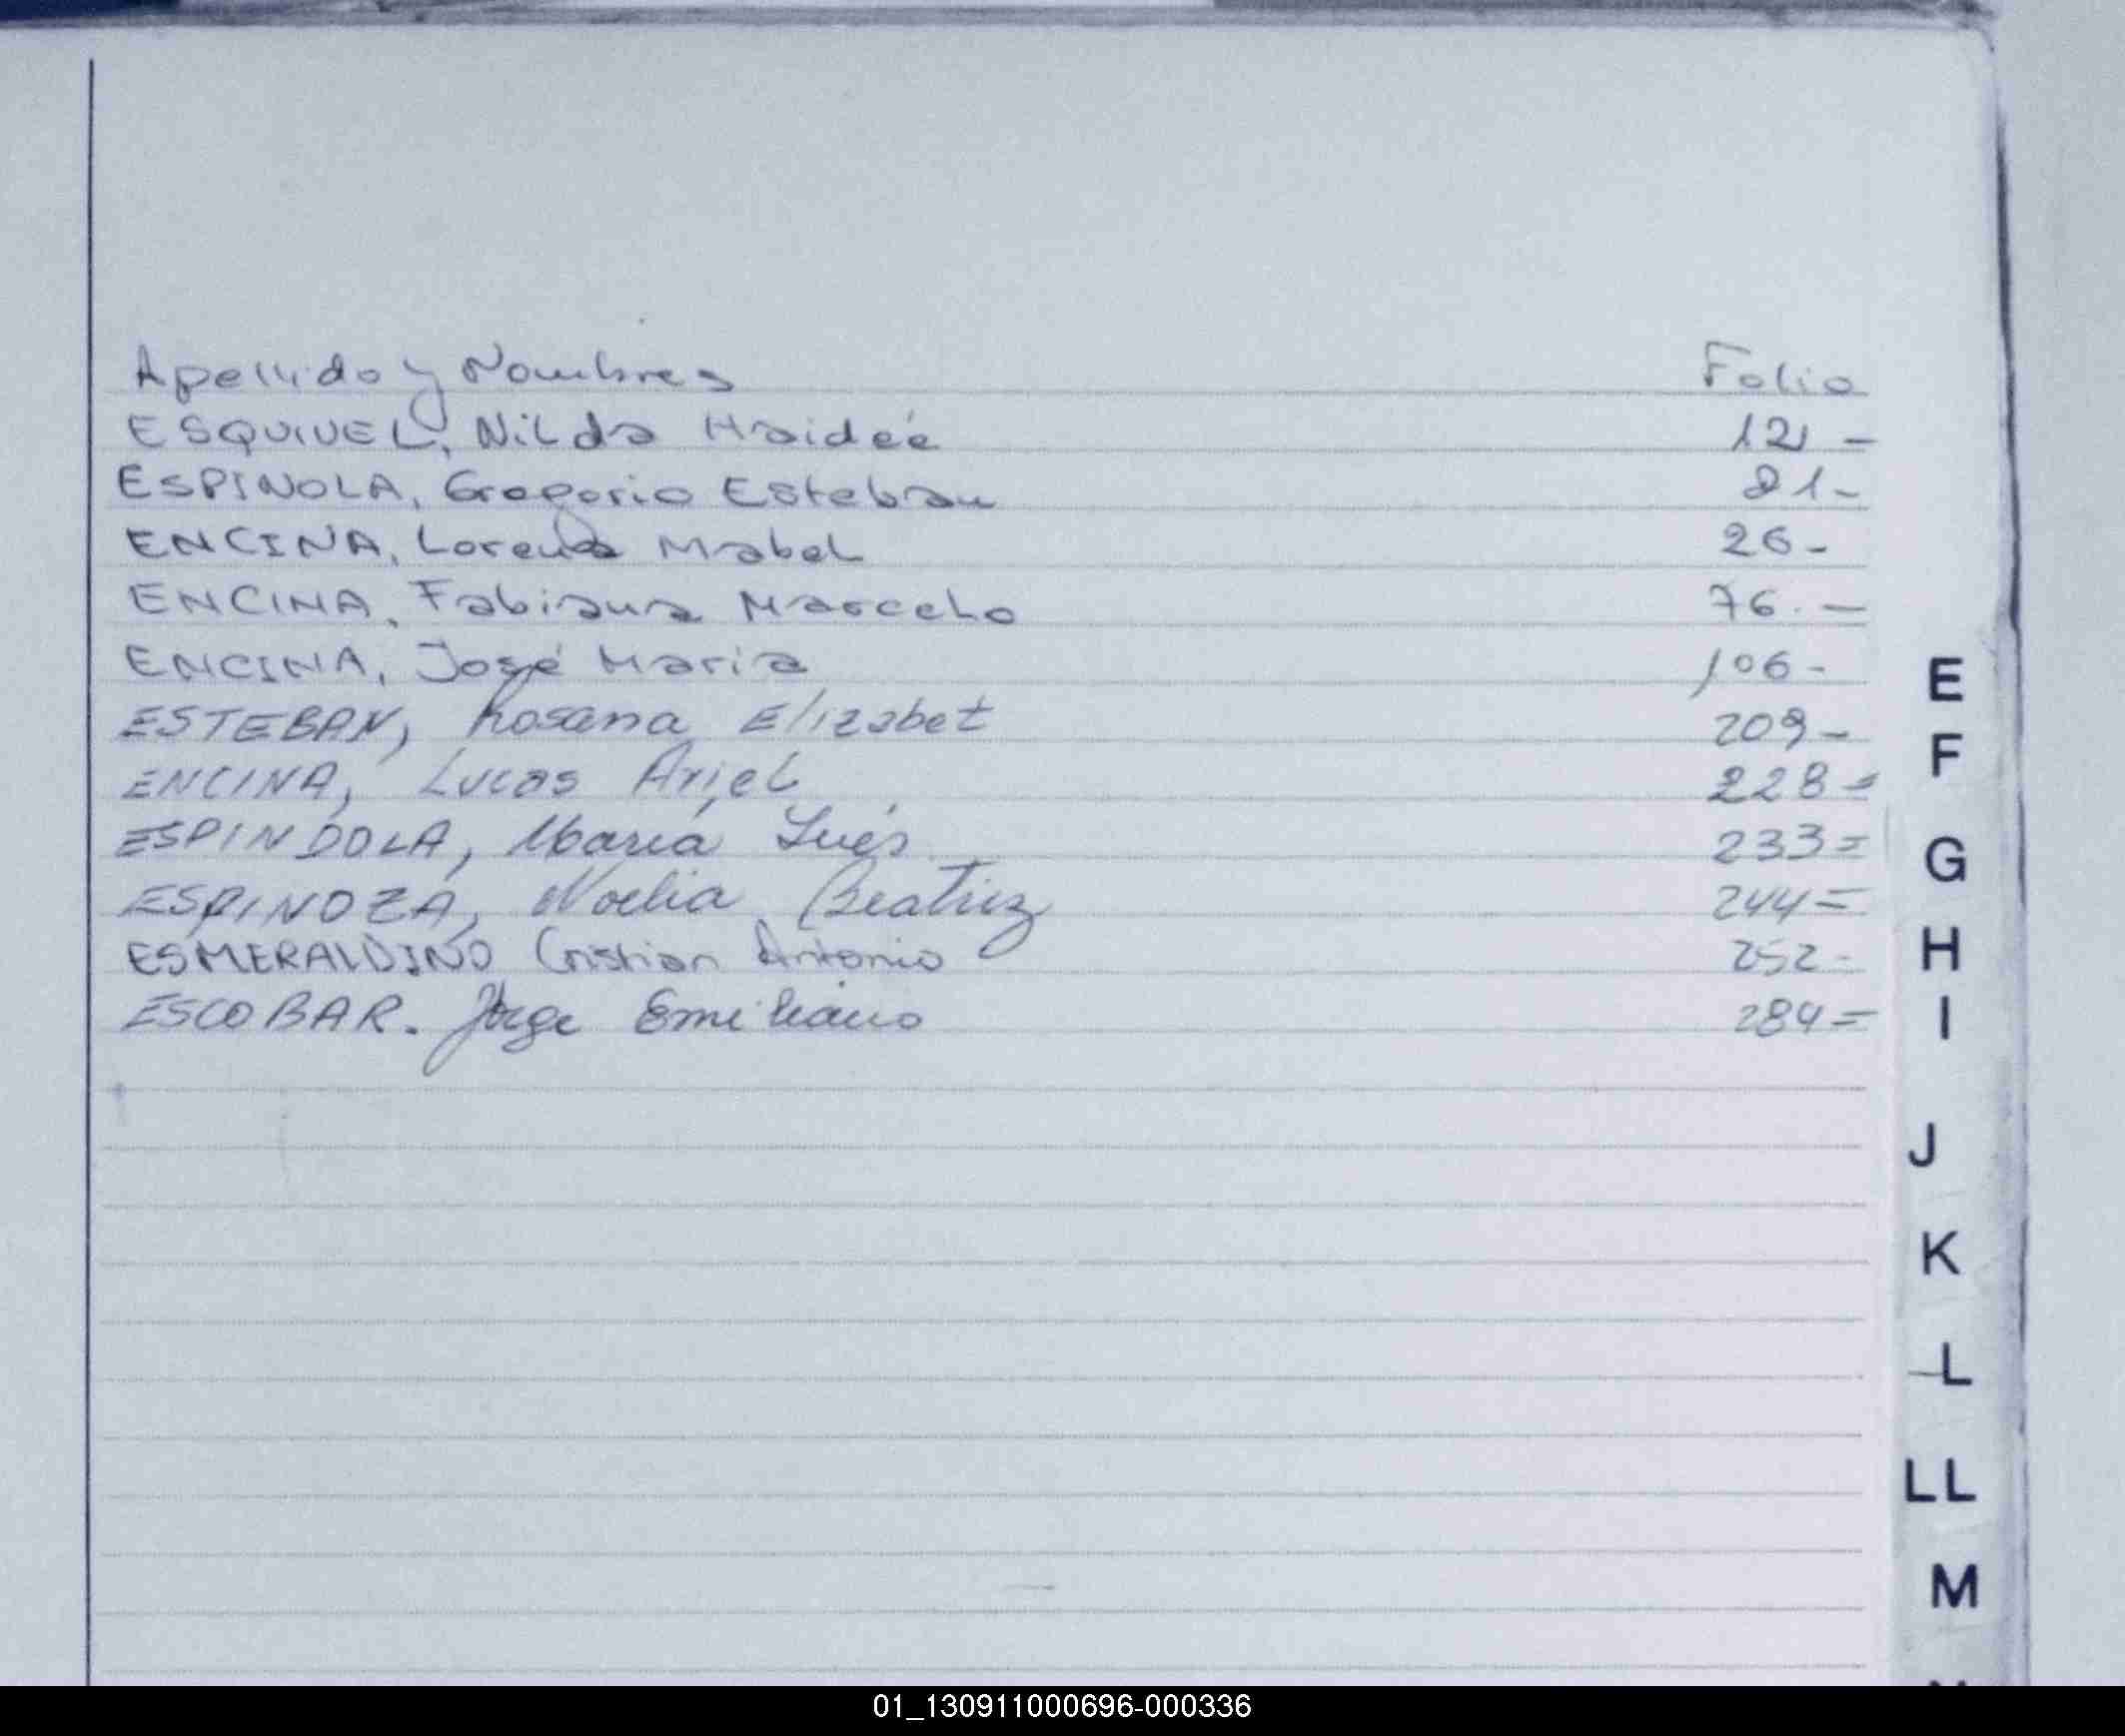 Apellido y Nombres Folio
ESQUIVEL, Nilda Haideé 121 -
ESPINOLA, Gregorio Esteban 21-
ENCINA, Lorena Mabel 26-
ENCINA, Fabiana Marcelo 76. -
ENCINA, José Maria 106-
ESTEBAN, Rosana Elizabet 209-
ENCINA, Lucas Ariel 228=
ESPINDOLA, María Inés 233=
ESPINOZA, Noelia Beatriz 244=
ESMERALDINO Cristian Antonio 252-
ESCOBAR. Jorge Emiliano 284=
E
F
G
H
I
J
K
L
LL
M
01_130911000696-000336